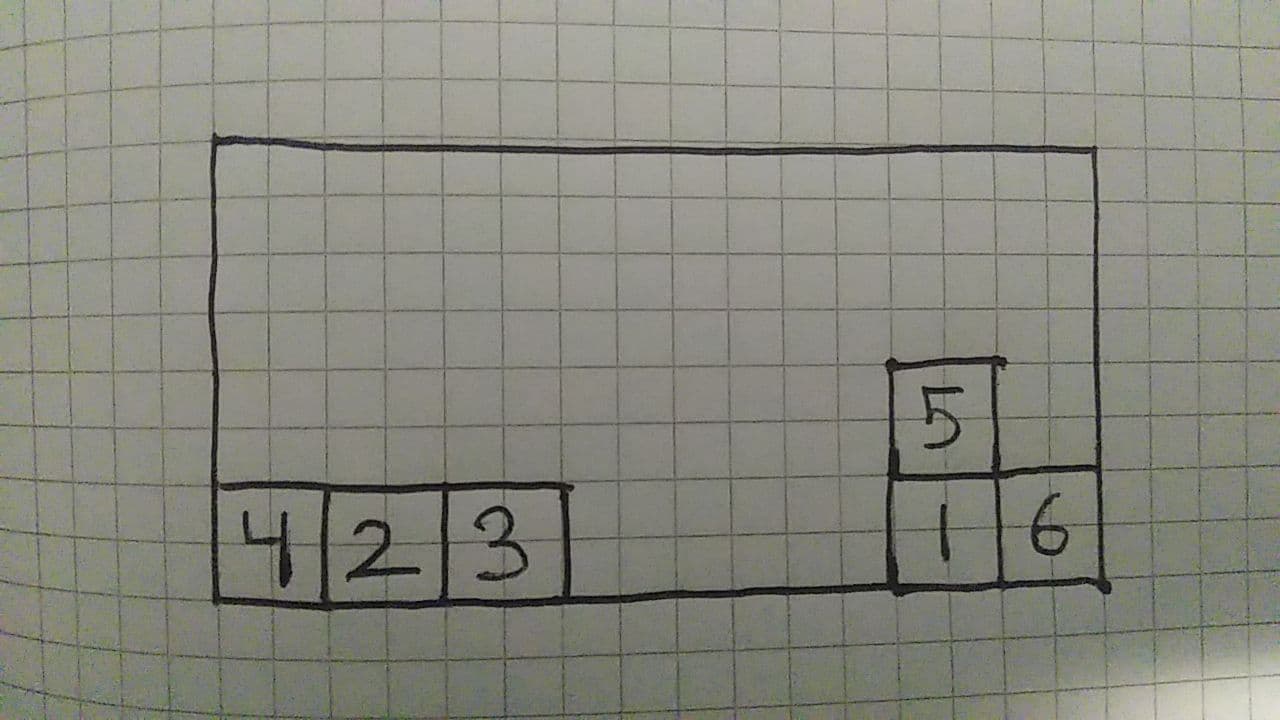 5
4 2 3 1 6